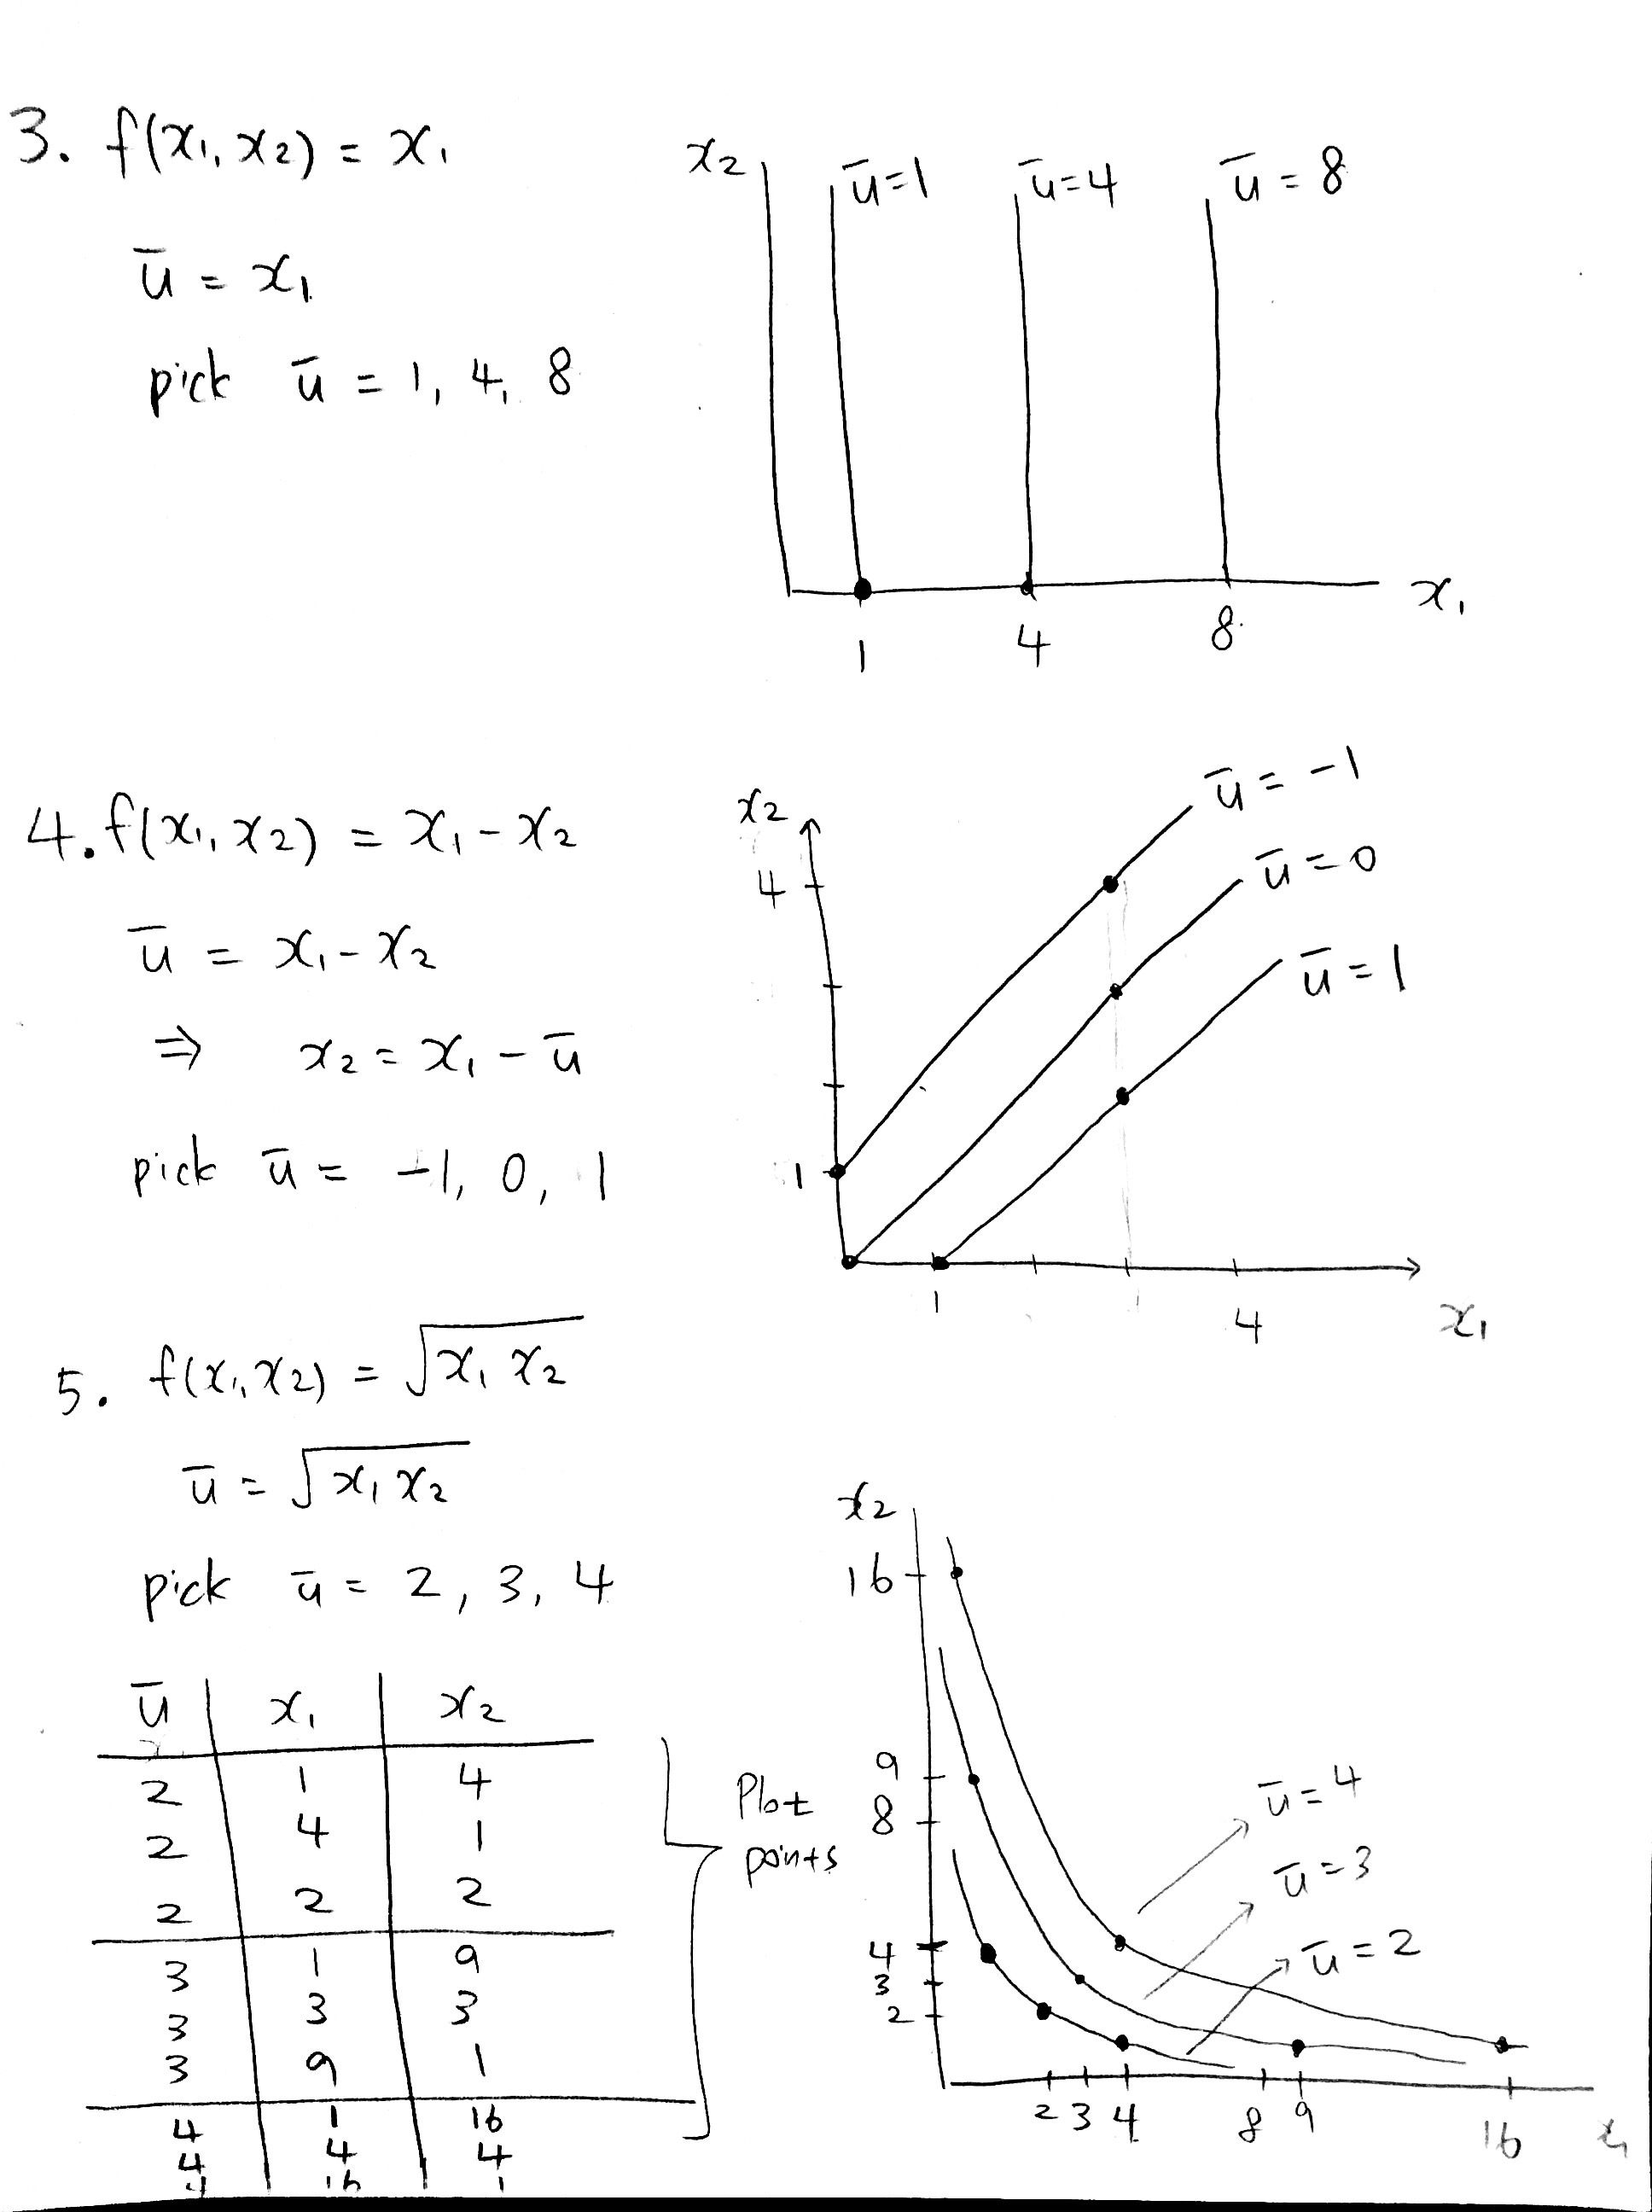 3. f(x₁, x₂) = x₁
ū = x₁
pick ū = 1, 4, 8
x₂
ū=1
ū=4
ū = 8
1
4
8
x₁
4. f(x₁, x₂) = x₁ - x₂
ū = x₁ - x₂
⇒ x₂ = x₁ - ū
pick ū = -1, 0, 1
x₂
4
1
ū = -1
ū = 0
ū = 1
1
4
x₁
5. f(x₁, x₂) = √x₁ x₂
ū = √x₁ x₂
pick ū = 2, 3, 4
ū x₁ x₂
2 1 4
2 4 1
2 2 2
3 1 9
3 3 3
3 9 1
4 1 16
4 4 4
4 16 1
Plot
points
x₂
16
9
8
4
3
2
ū = 4
ū = 3
ū = 2
2 3 4 8 9 16
x₁